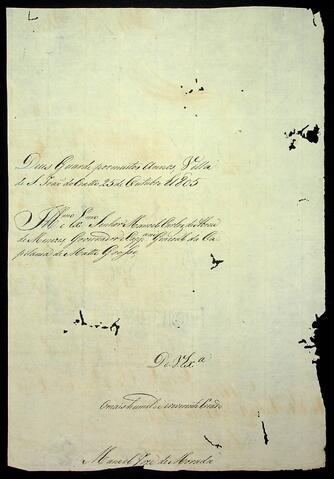 Deus Guarde por muitos Annos, Villa
de S. João do Cratto 25 de Outubro d'1805
Illmo e Exmo Senhor Manoel Carlos de
de Menezes Governador e Cappam General da Ca
pitania de Matto Grosso
De V. Exa
O mais humilde reverende Criado
Manoel Joze de